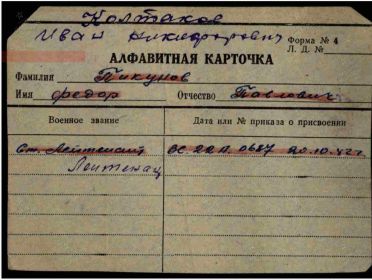 Колтаков
Иван Никифорович Форма № 4
Л. Д. №
АЛФАВИТНАЯ КАРТОЧКА
Фамилия Пикунов
Имя Федор Отчество Павлович
Военное звание Дата или № приказа о присвоении
Ст. Лейтенант ОС 22 А. 0687 20.10.42 г.
Лейтенант